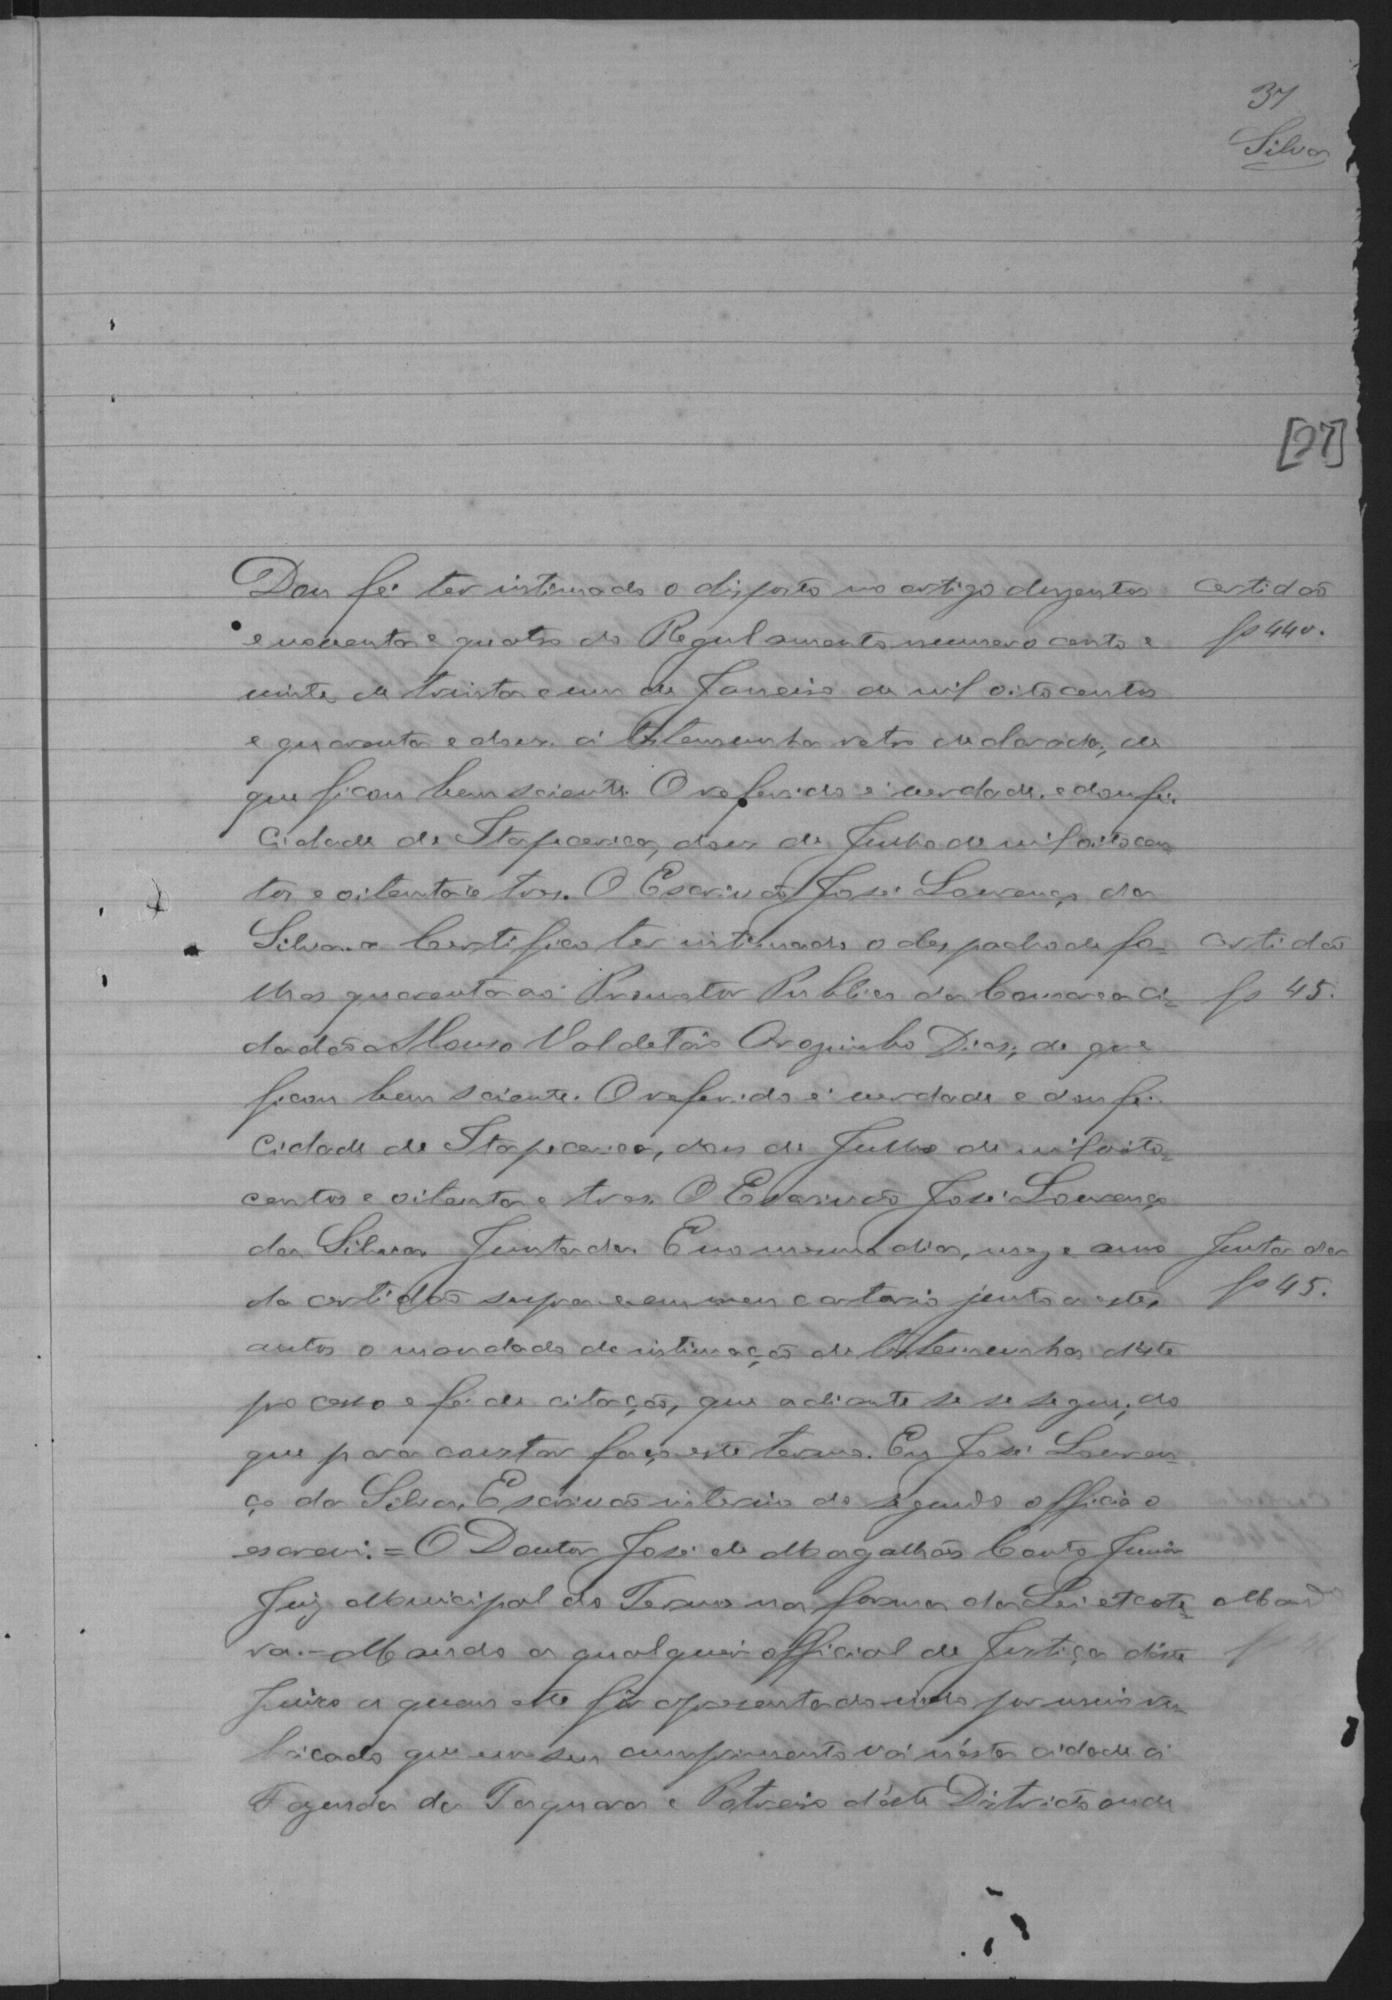 37
Silva
[37]
Dou fé ter intimado o disposto no artigo duzentos
certidão
e noventa e quatro do Regulamento numero cento e
fs 44v.
vinte de trinta e um de Janeiro de mil oitocentos
e quarenta e dous á testemunha retro declarada, de
que ficou bem sciente. O referido é verdade e dou fé.
Cidade de Itapecerica, dous de Junho de mil oitocen-
tos e oitenta e tres. O Escrivão José Lourenço da
Silva. = Certifico ter intimado o despacho de fo-
certidão
lhas quarenta ao Promotor Publico da Comarca ci-
fs 45.
dadão Afonso Valdetaro Dias, de que
ficou bem sciente. O referido é verdade e dou fé.
Cidade de Itapecerica, dous de Julho de mil oito-
centos e oitenta e tres. O Escrivão José Lourenço
da Silva. Juntada. E no mesmo dia, mez e anno
Juntada
da certidão supra e em meu cartorio junto a estes
fs 45.
autos o mandado de intimação de testemunhas déste
processo e fé de citação, que adiante se se segue, do
que para constar faço este termo. Eu José Louren-
ço da Silva, Escrivão interino do segundo officio o
escrevi. = O Doutor José de Magalhães Couto Junior
Juiz Municipal do Termo na forma da Lei etcete-
Mand
ra. - Mando a qualquer official de Justiça déste
Juizo a quem este fôr apresentado indo por mim ru-
bricado que em seu cumprimento vá nésta cidade á
Fazenda da Taquara e Potreiro déste Districto onde